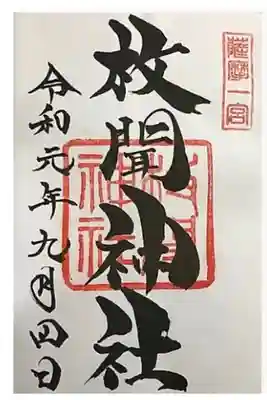 薩摩一宮
枚聞神社
枚聞神社
令和元年九月四日